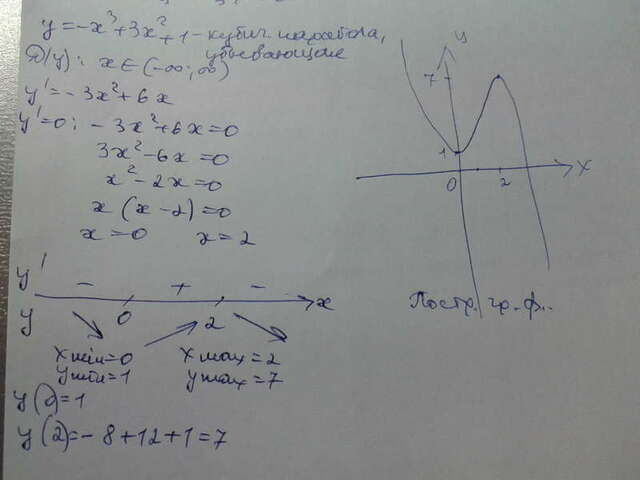 y = -x³+3x²+1 - кубич парабола,
убывающая
D(y): x∈(-∞; ∞)
y' = -3x²+6x
y'=0: -3x²+6x=0
3x²-6x=0
x²-2x=0
x(x-2)=0
x=0 x=2
y' - + -
x
y 0 2
xmin=0 xmax=2
ymin=1 ymax=7
y(0)=1
y(2)=-8+12+1=7
y
7
1
0 2 x
Постр. гр. ф..